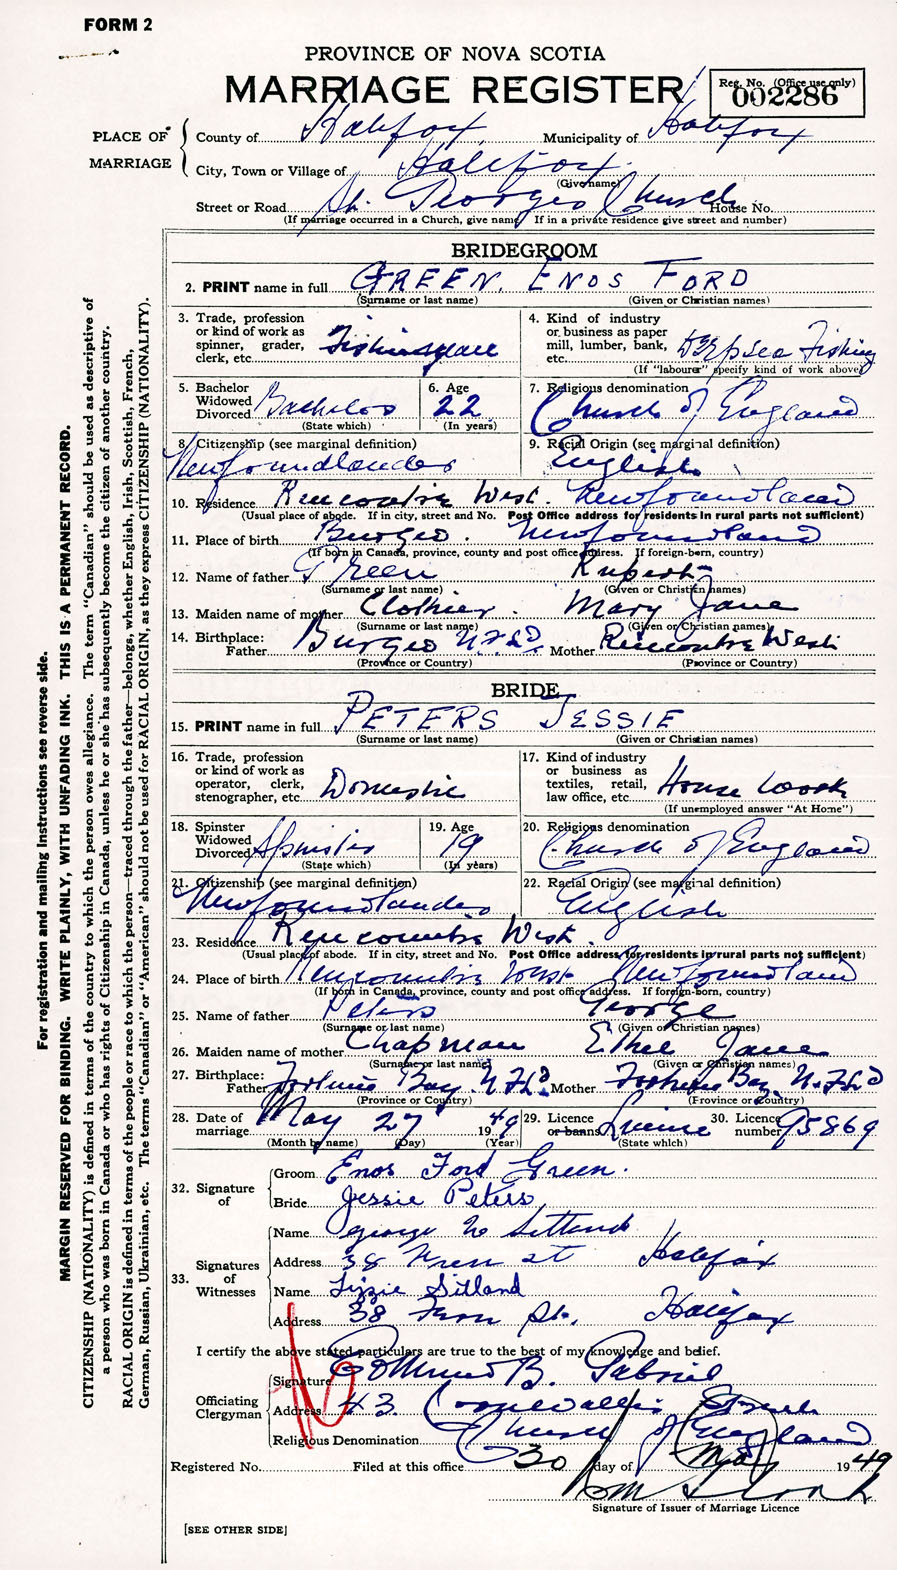 FORM 2
PROVINCE OF NOVA SCOTIA
MARRIAGE REGISTER
Reg. No. (Office use only)
002286
PLACE OF MARRIAGE
County of Halifax Municipality of Halifax
City, Town or Village of Halifax
(Give name)
Street or Road St. Georges Church House No.
(If marriage occurred in a Church, give name If in a private residence give street and number)
BRIDEGROOM
2. PRINT name in full GREEN, ENOS FORD
(Surname or last name) (Given or Christian names)
3. Trade, profession or kind of work as spinner, grader, clerk, etc.
4. Kind of industry or business as paper mill, lumber, bank, etc. Deepsea Fishing
(If "labourer" specify kind of work above)
5. Bachelor Widowed Divorced Bachelor
(State which)
6. Age 22
(In years)
7. Religious denomination Church of England
8. Citizenship (see marginal definition) Newfoundlander
9. Racial Origin (see marginal definition) English
10. Residence Rencontre West. Newfoundland
(Usual place of abode. If in city, street and No. Post Office address for residents in rural parts not sufficient)
11. Place of birth Burgeo. Newfoundland
(If born in Canada, province, county and post office address. If foreign-born, country)
12. Name of father Green Rupert
(Surname or last name) (Given or Christian names)
13. Maiden name of mother Clothier. Mary Jane
(Surname or last name) (Given or Christian names)
14. Birthplace: Father Burgeo N.F.L.D. Mother Rencontre West
(Province or Country) (Province or Country)
BRIDE
15. PRINT name in full PETERS JESSIE
(Surname or last name) (Given or Christian names)
16. Trade, profession or kind of work as operator, clerk, stenographer, etc. Domestic
17. Kind of industry or business as textiles, retail, law office, etc. House Work
(If unemployed answer "At Home")
18. Spinster Widowed Divorced Spinster
(State which)
19. Age 19
(In years)
20. Religious denomination Church of England
21. Citizenship (see marginal definition) Newfoundlander
22. Racial Origin (see marginal definition) English
23. Residence Rencontre West.
(Usual place of abode. If in city, street and No. Post Office address for residents in rural parts not sufficient)
24. Place of birth Rencontre West Newfoundland
(If born in Canada, province, county and post office address. If foreign-born, country)
25. Name of father Peters George
(Surname or last name) (Given or Christian names)
26. Maiden name of mother Chapman Ethel Jane
(Surname or last name) (Given or Christian names)
27. Birthplace: Father Fortune Bay N.F.L.D Mother Fortune Bay N.F.L.D
(Province or Country) (Province or Country)
28. Date of marriage May 27 1949
(Month by name) (Day) (Year)
29. Licence or banns Licence
(State which)
30. Licence number 95869
32. Signature of
Groom Enos Ford Green.
Bride Jessie Peters
33. Signatures of Witnesses
Name George
Address 38 st Halifax
Name Lizzie Sitland
Address 38 St. Halifax
I certify the above stated particulars are true to the best of my knowledge and belief.
Officiating Clergyman
Signature Edmund B. Gabriel
Address 43. Cornwallis Street
Religious Denomination Church of England
Registered No. Filed at this office 30 day of May 1949
Signature of Issuer of Marriage Licence
[SEE OTHER SIDE]
For registration and mailing instructions see reverse side.
MARGIN RESERVED FOR BINDING. WRITE PLAINLY, WITH UNFADING INK. THIS IS A PERMANENT RECORD.
CITIZENSHIP (NATIONALITY) is defined in terms of the country to which the person owes allegiance. The term "Canadian" should be used as descriptive of
a person who was born in Canada or who has rights of Citizenship in Canada, unless he or she has subsequently become the citizen of another country.
RACIAL ORIGIN is defined in terms of the people or race to which the person—traced through the father—belongs, whether English, Irish, Scottish, French,
German, Russian, Ukrainian, etc. The terms "Canadian" or "American" should not be used for RACIAL ORIGIN, as they express CITIZENSHIP (NATIONALITY).